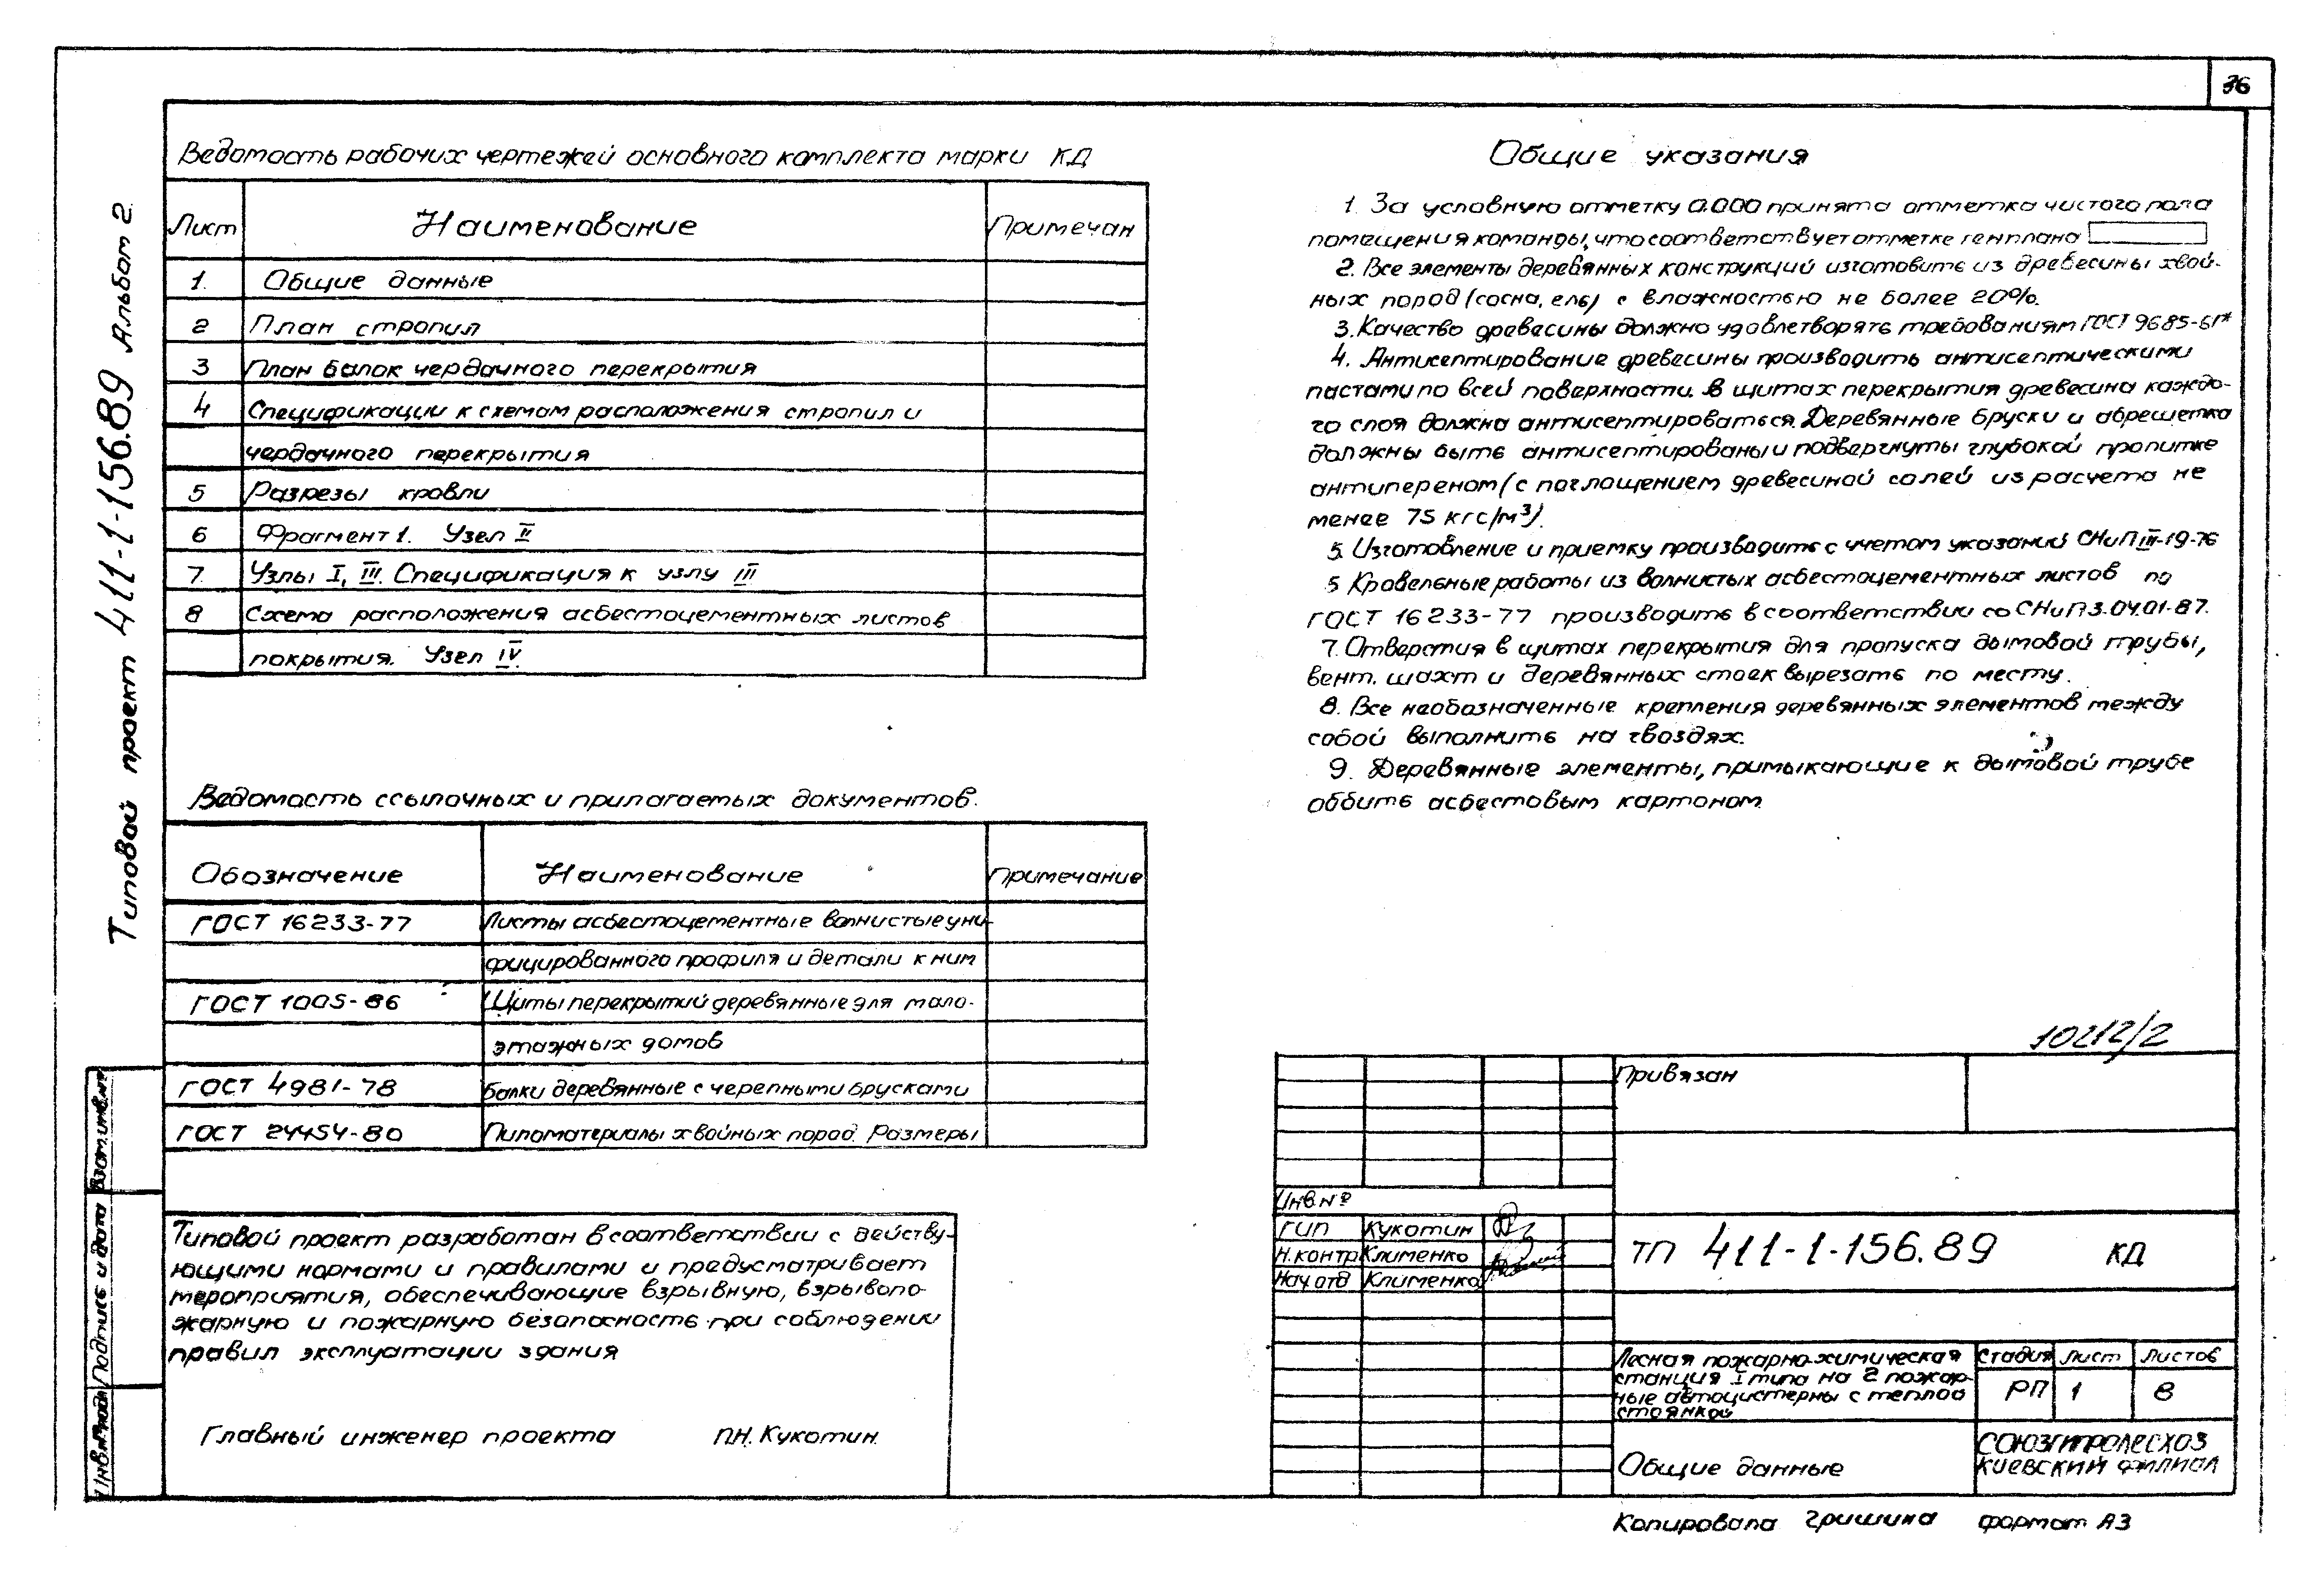 36
Типовой проект 411-1-156.89 Альбом 2.
Ведомость рабочих чертежей основного комплекта марки КД
Лист Наименование Примечан
1. Общие данные
2 План стропил
3 План балок чердачного перекрытия
4 Спецификации к схемам расположения стропил и
чердачного перекрытия
5 Разрезы кровли
6 Фрагмент 1. Узел II
7. Узлы I, III. Спецификация к узлу III
8 Схема расположения асбестоцементных листов
покрытия. Узел IV.
Ведомость ссылочных и прилагаемых документов.
Обозначение Наименование Примечание
ГОСТ 16233-77 Листы асбестоцементные волнистые уни-
фицированного профиля и детали к ним
ГОСТ 1005-86 Щиты перекрытий деревянные для мало-
этажных домов
ГОСТ 4981-78 Балки деревянные с черепными брусками
ГОСТ 24454-80 Пиломатериалы хвойных пород. Размеры
Типовой проект разработан в соответствии с действу-
ющими нормами и правилами и предусматривает
мероприятия, обеспечивающие взрывную, взрывопо-
жарную и пожарную безопасность при соблюдении
правил эксплуатации здания
Главный инженер проекта П.Н. Кукотин.
Взам.инв.№
Подпись и дата
Инв.№подл
Общие указания
1. За условную отметку 0.000 принята отметка чистого пола
помещения команды, что соответствует отметке генплана
2. Все элементы деревянных конструкций изготовить из древесины хвой-
ных пород (сосна, ель) с влажностью не более 20%.
3. Качество древесины должно удовлетворять требованиям ГОСТ 9685-61*
4. Антисептирование древесины производить антисептическими
пастами по всей поверхности. В щитах перекрытия древесина каждо-
го слоя должна антисептироваться. Деревянные бруски и обрешетка
должны быть антисептированы и подвергнуты глубокой пропитке
антипереном (с поглощением древесиной солей из расчета не
менее 75 кгс/м³).
5. Изготовление и приемку производить с учетом указаний СНиП III-19-76
5 Кровельные работы из волнистых асбестоцементных листов по
ГОСТ 16233-77 производить в соответствии со СНиП 3.04.01-87.
7. Отверстия в щитах перекрытия для пропуска дымовой трубы,
вент. шахт и деревянных стоек вырезать по месту.
8. Все необозначенные крепления деревянных элементов между
собой выполнить на гвоздях.
9. Деревянные элементы, примыкающие к дымовой трубе
оббить асбестовым картоном.
10212/2
Привязан
Инв №
ГИП Кукотин
Н.контр Клименко
Нач отд Клименко
ТП 411-1-156.89 КД
Лесная пожарно-химическая
станция I типа на 2 пожар-
ные автоцистерны с теплой
стоянкой
Стадия Лист Листов
РП 1 8
Общие данные
СОЮЗГИПРОЛЕСХОЗ
КИЕВСКИЙ ФИЛИАЛ
Копировала Гришина формат А3